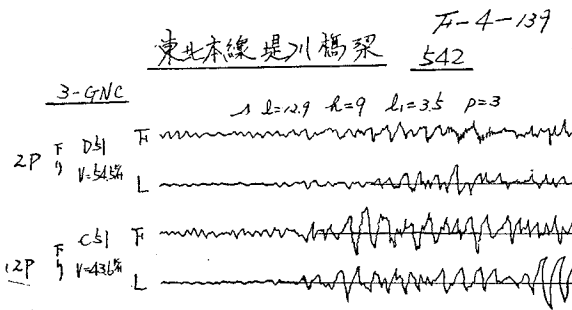 下-4-139
東北本線 堤川橋梁 542
3-GNC
s l=12.9 h=9 l₁=3.5 p=3
2P 下り D51 下
V=54.5 L
12P 下り C51 下
V=43.6 L